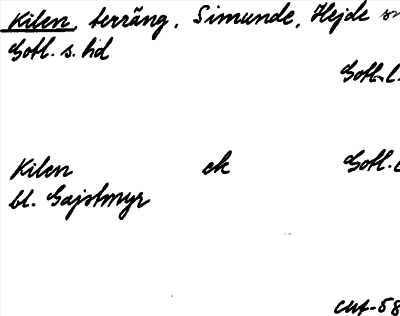 Kilen, terräng, Simunde, Hejde sn
Gotl. s. hd
Gotl. l.
Kilen ek Gotl. l
bl. Gajstmyr
CHA-58